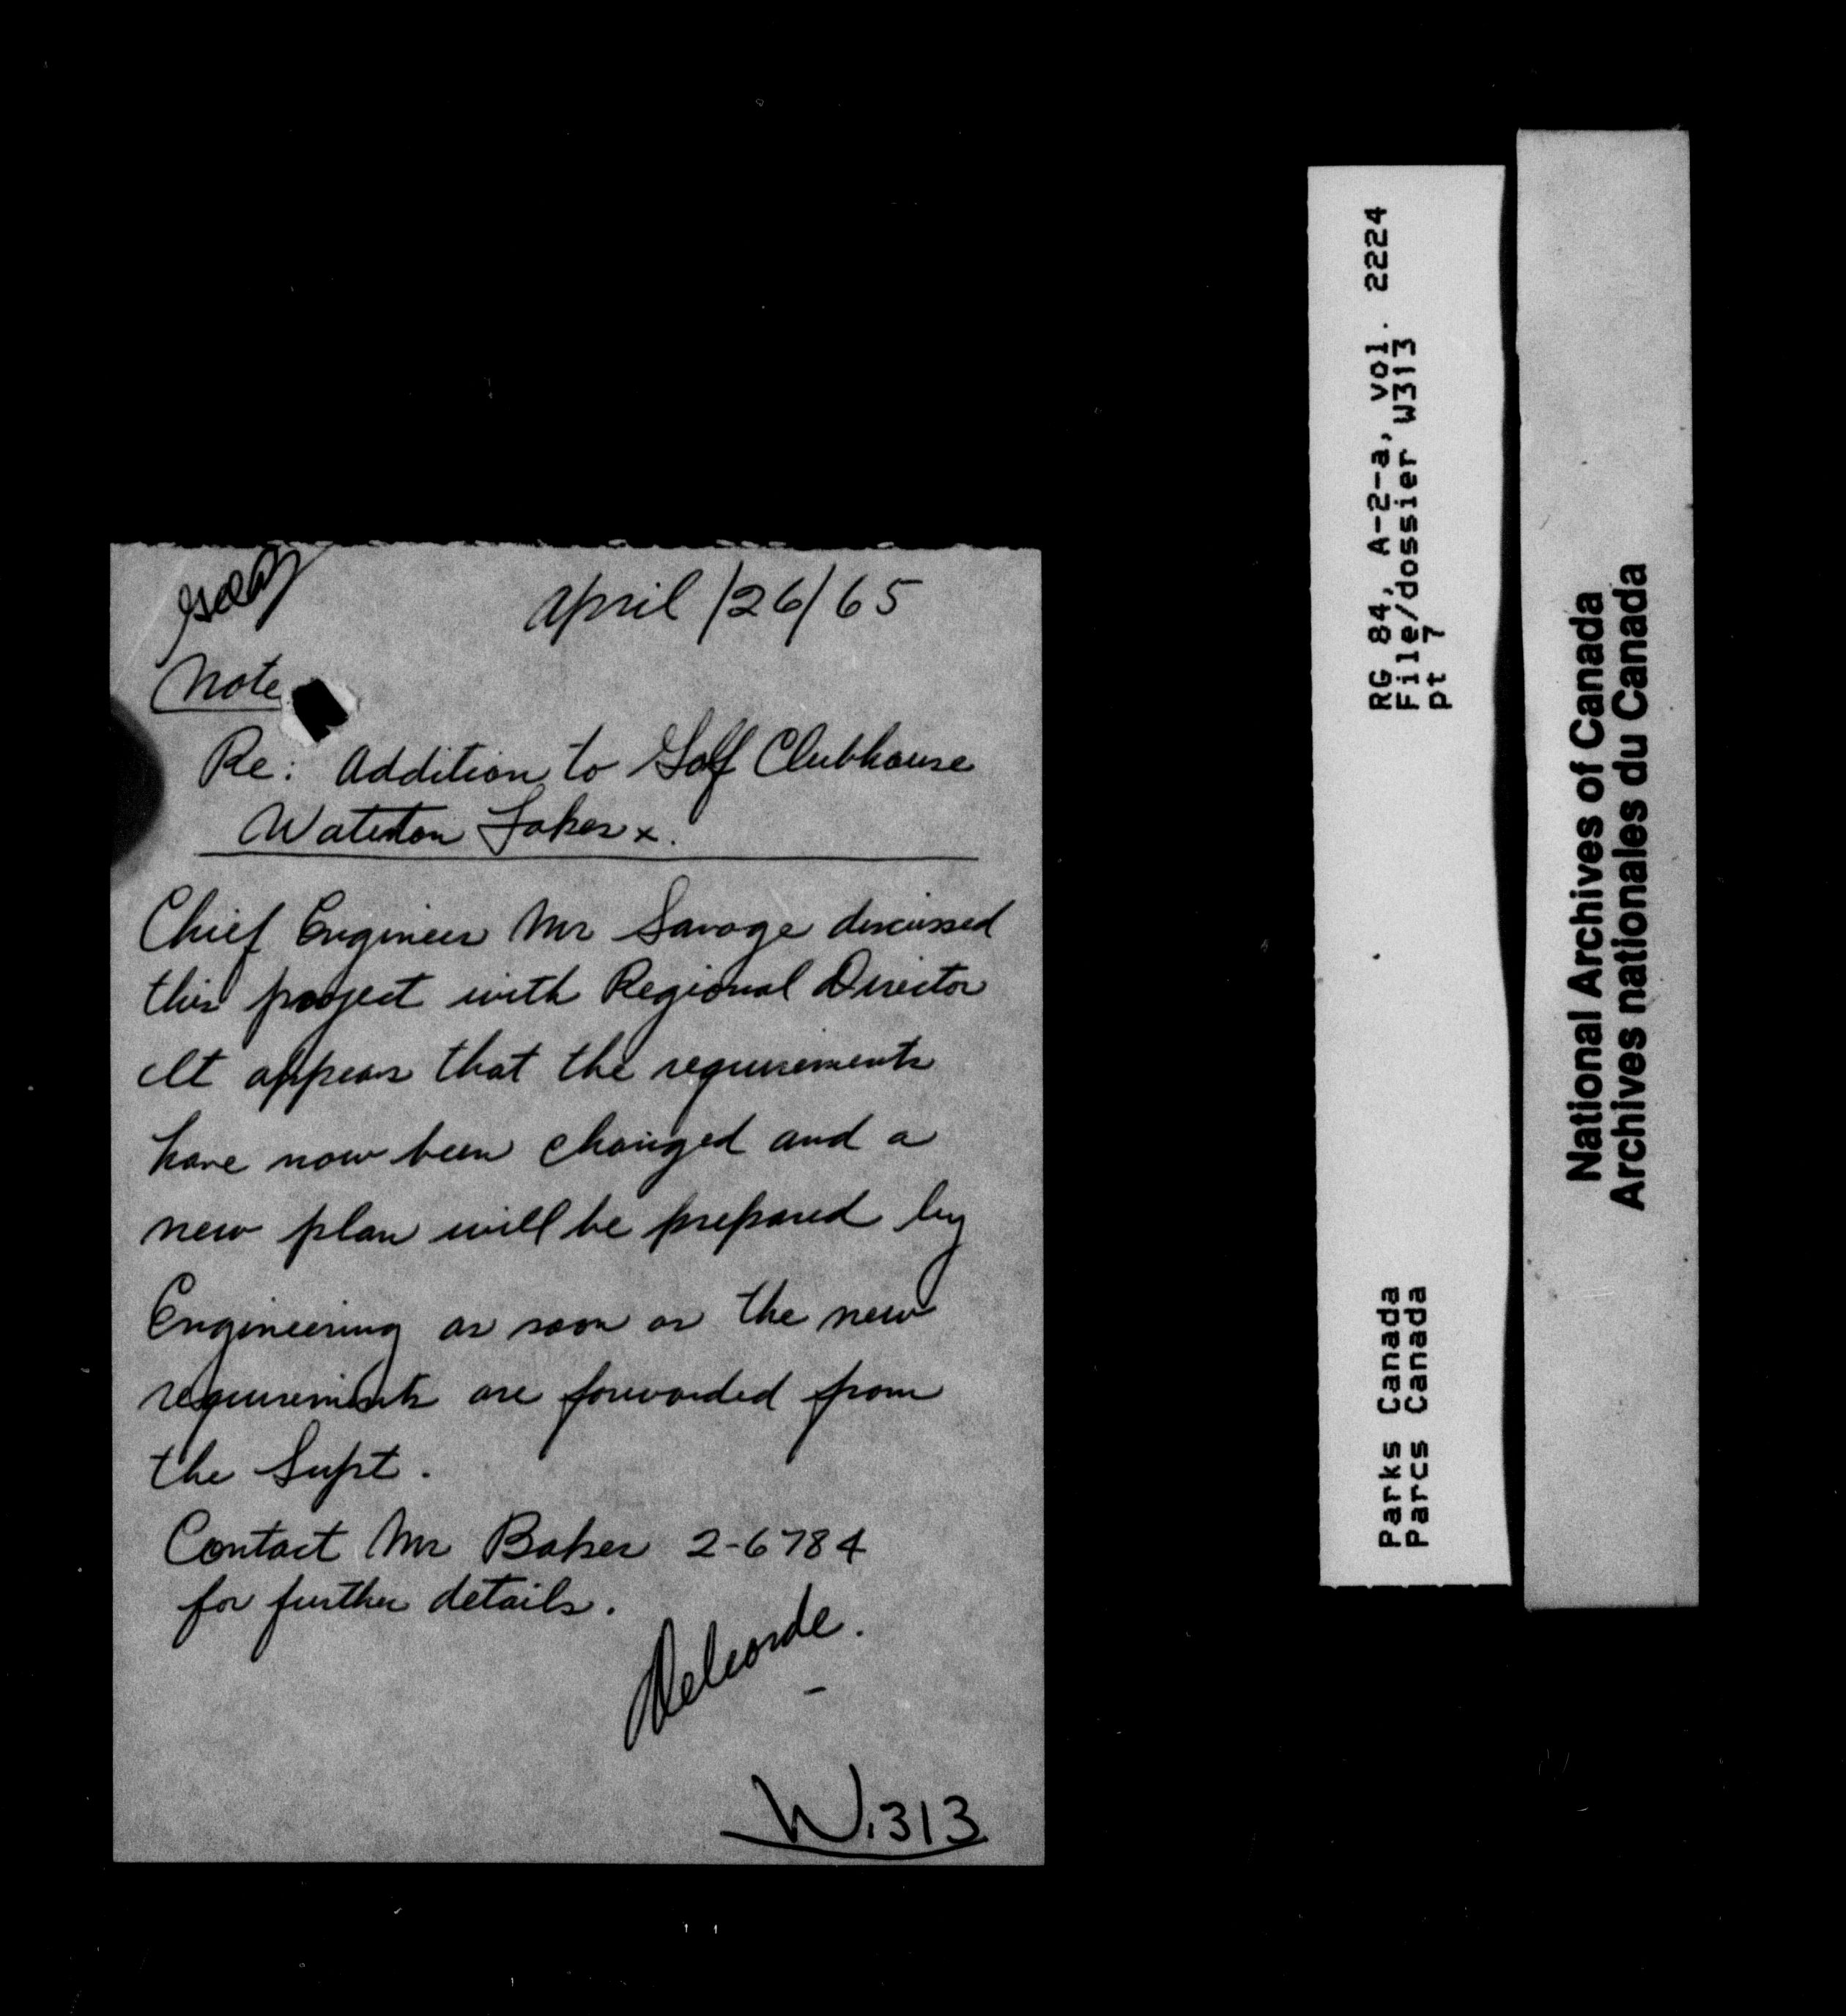 April/26/65
Note
Re: Addition to Golf Clubhouse
Waterton Lakes x.
Chief Engineer Mr Savage discussed
this project with Regional Director
It appears that the requirements
have now been changed and a
new plan will be prepared by
Engineering as soon as the new
requirements are forwarded from
the Supt.
Contact Mr Baker 2-6784
for further details.
W.313
RG 84, A-2-a, vol. 2224
File/dossier W313
pt 7
Parks Canada
Parcs Canada
National Archives of Canada
Archives nationales du Canada